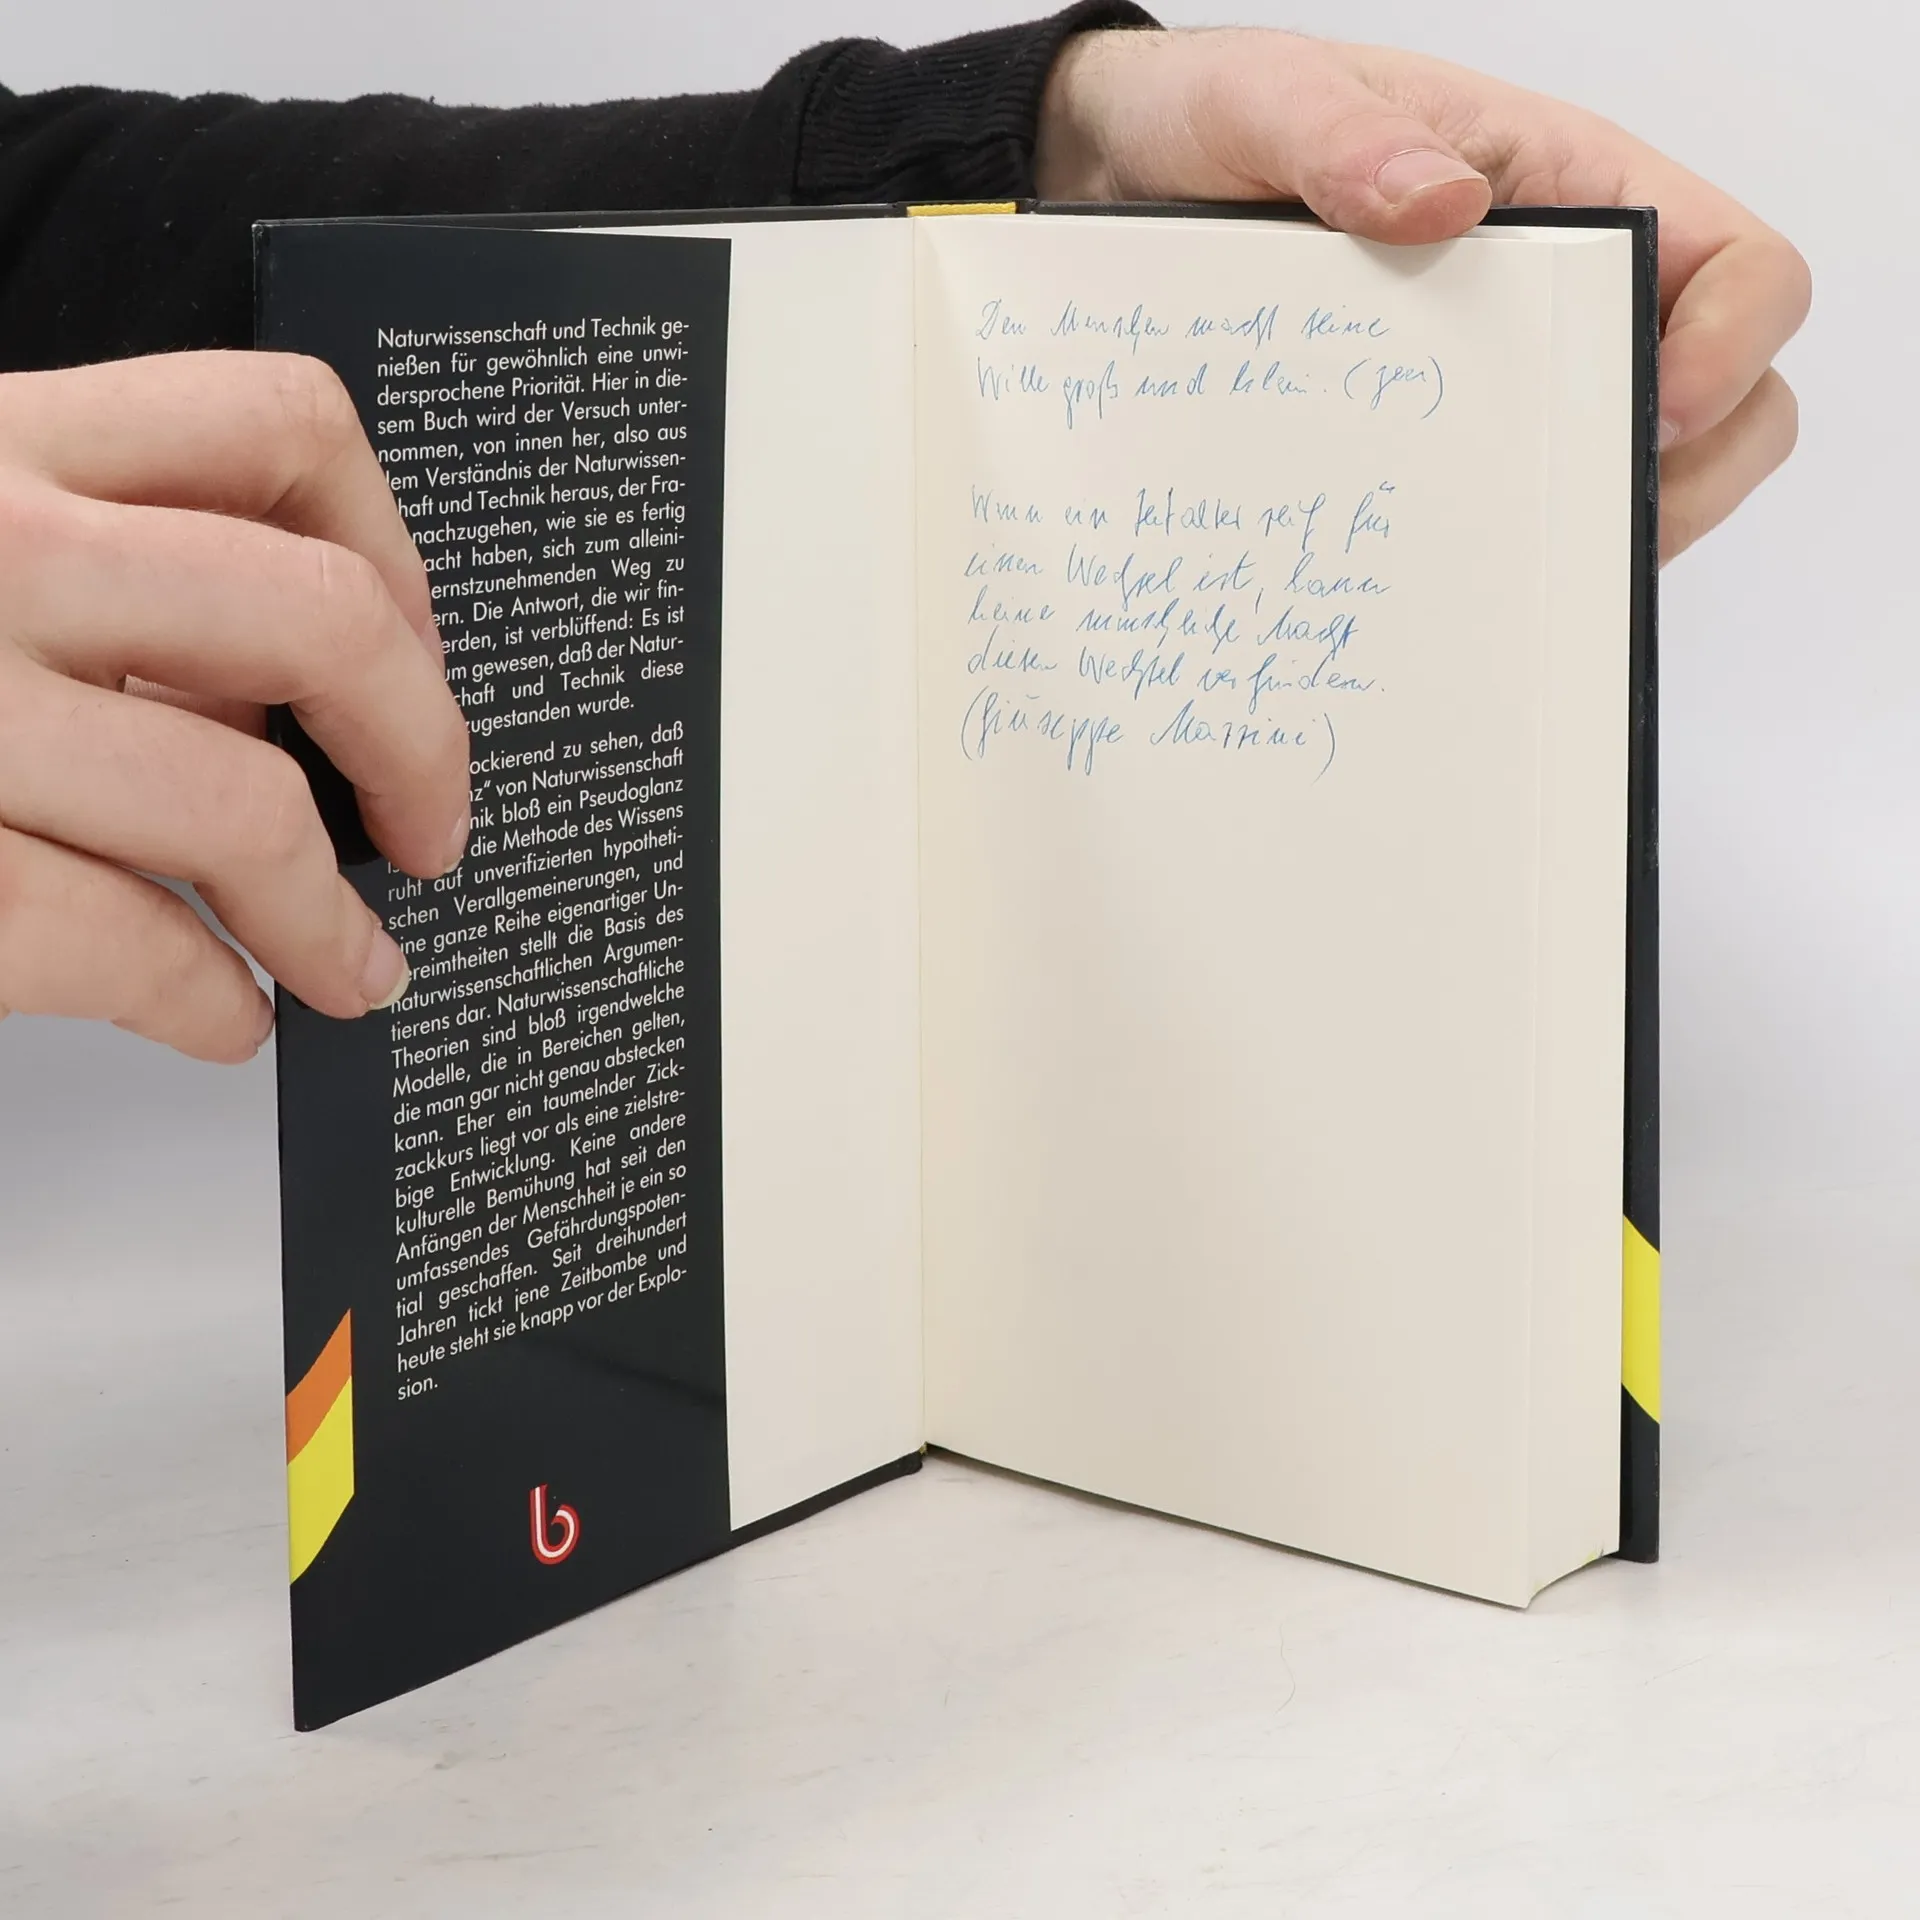 Naturwissenschaft und Technik ge-
nießen für gewöhnlich eine unwi-
dersprochene Priorität. Hier in die-
sem Buch wird der Versuch unter-
nommen, von innen her, also aus
dem Verständnis der Naturwissen-
haft und Technik heraus, der Fra-
nachzugehen, wie sie es fertig
acht haben, sich zum alleini-
ernstzunehmenden Weg zu
ern. Die Antwort, die wir fin-
erden, ist verblüffend: Es ist
um gewesen, daß der Natur-
chaft und Technik diese
zugestanden wurde.
ockierend zu sehen, daß
nz" von Naturwissenschaft
nik bloß ein Pseudoglanz
die Methode des Wissens
ruht auf unverifizierten hypotheti-
schen Verallgemeinerungen, und
eine ganze Reihe eigenartiger Un-
ereimtheiten stellt die Basis des
naturwissenschaftlichen Argumen-
tierens dar. Naturwissenschaftliche
Theorien sind bloß irgendwelche
Modelle, die in Bereichen gelten,
die man gar nicht genau abstecken
kann. Eher ein taumelnder Zick-
zackkurs liegt vor als eine zielstre-
bige Entwicklung. Keine andere
kulturelle Bemühung hat seit den
Anfängen der Menschheit je ein so
umfassendes Gefährdungspoten-
tial geschaffen. Seit dreihundert
Jahren tickt jene Zeitbombe und
heute steht sie knapp vor der Explo-
sion.
b
Den Menschen macht seine
Wille groß und klein.
Wenn ein Zeitalter reif für
einen Wechsel ist, kann
keine menschliche Macht
diesen Wechsel verhindern.
(Giuseppe Mazzini)